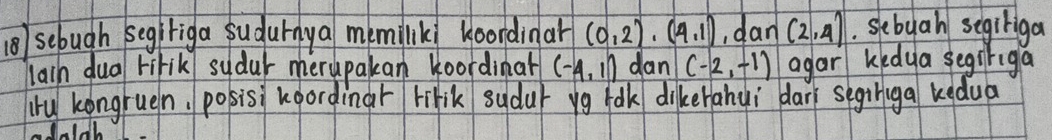 18) sebuah segitiga sudutnya memiliki koordinat (0,2). (4,1), dan (2,4). sebuah segitiga
lain dua titik sudut merupakan koordinat (-4,1) dan (-2,-1) agar kedua segitiga
itu kongruen, posisi koordinat titik sudut yg tdk diketahui dari segitiga kedua
adalah ...